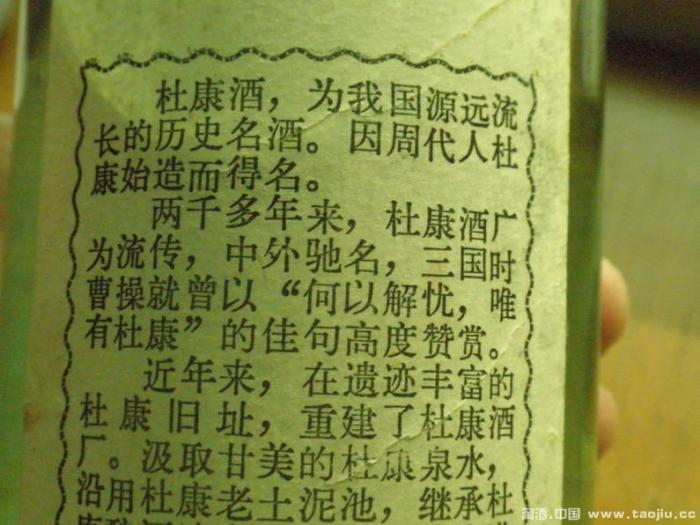 杜康酒，为我国源远流
长的历史名酒。因周代人杜
康始造而得名。
两千多年来，杜康酒广
为流传，中外驰名，三国时
曹操就曾以“何以解忧，唯
有杜康”的佳句高度赞赏。
近年来，在遗迹丰富的
杜康旧址，重建了杜康酒
厂。汲取甘美的杜康泉水，
沿用杜康老土泥池，继承杜
淘酒.中国 www.taojiu.cc